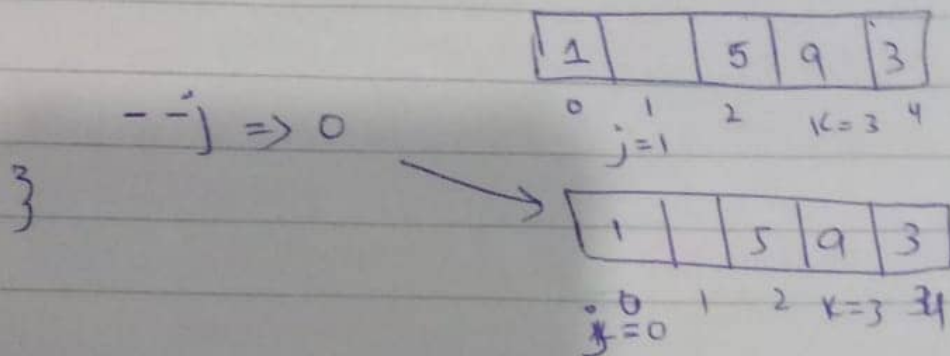 1 5 9 3
0 1 2 K=3 4
j=1
--j => 0
}
1 5 9 3
0 1 2 K=3 4
j=0